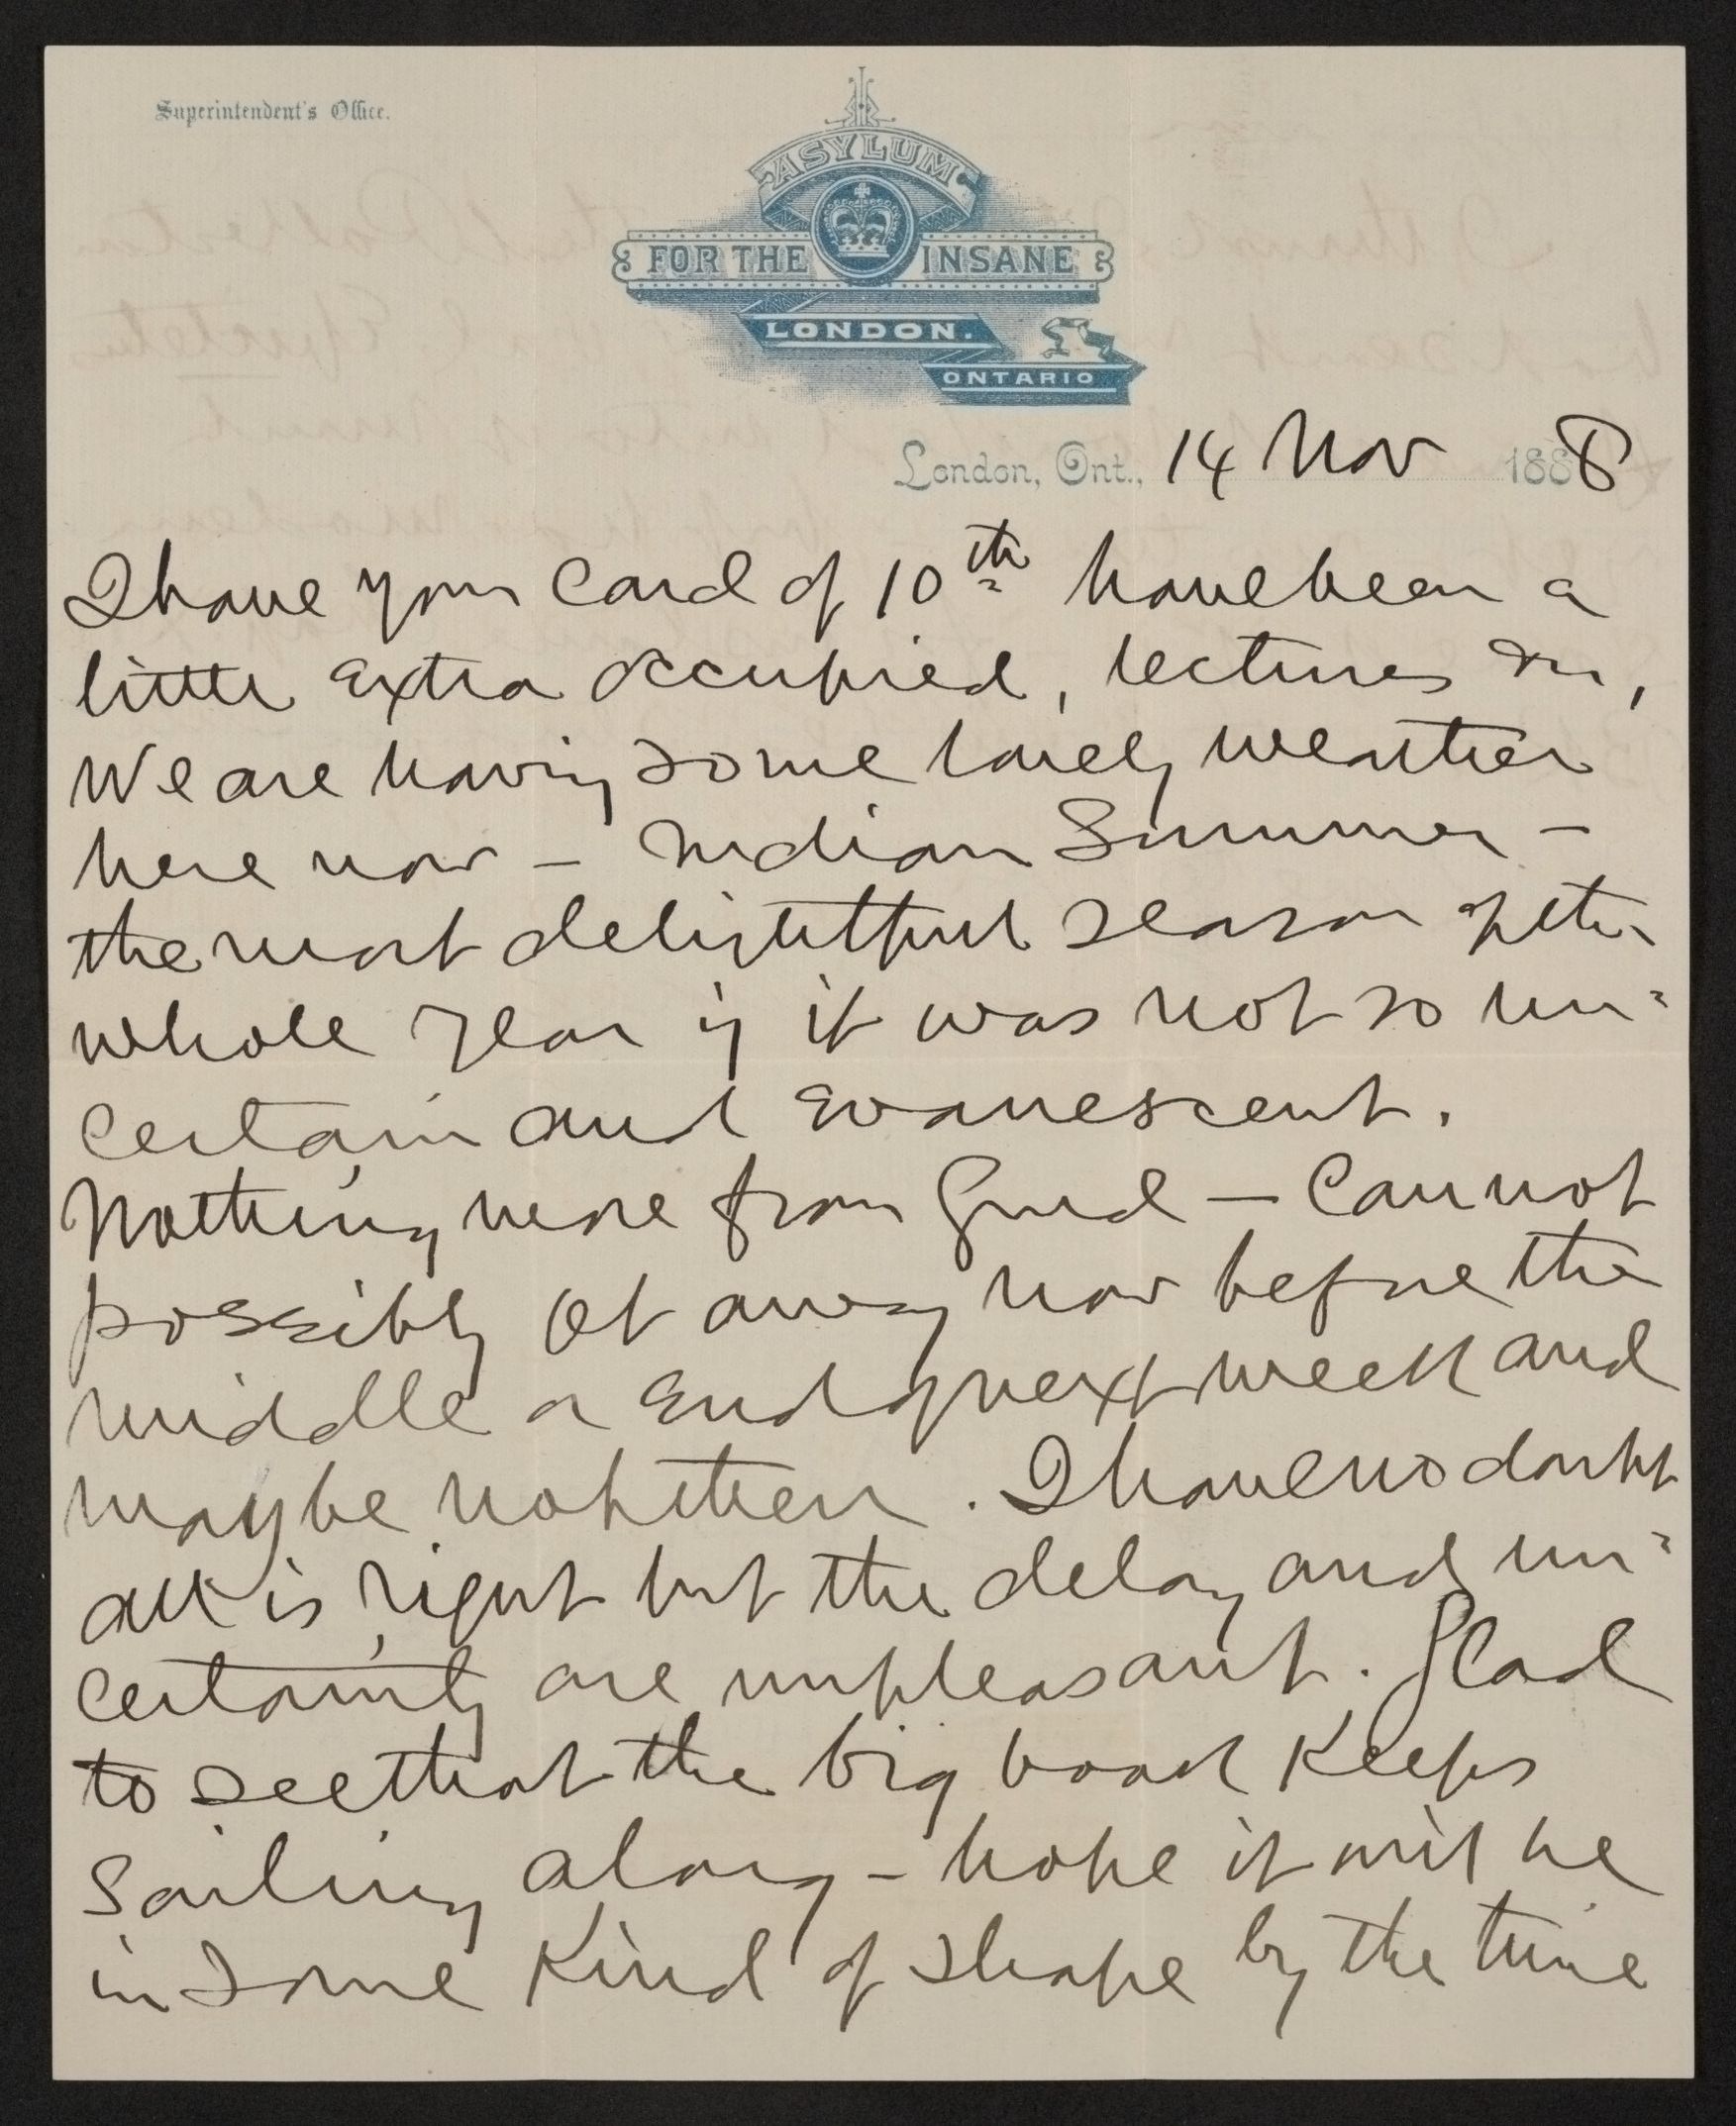 Superintendent's Office.
ASYLUM
FOR THE INSANE
LONDON.
ONTARIO
London, Ont., 14 Nov 1888
I have your card of 10th have been a
little extra occupied, lectures &c,
We are having some lovely weather
here now – Indian Summer –
the most delightful season of the
whole year if it was not so un-
certain and evanescent.
Nothing more from Gurd — Cannot
possibly get away now before the
middle or end of next week and
maybe not then. I have no doubt
all is right but the delay and un-
certainty are unpleasant. Glad
to see that the big book keeps
sailing along – hope it will be
in some kind of shape by the time